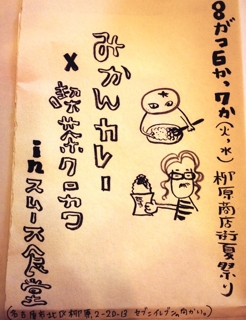 8がつ6か、7か(火、水) 柳原商店街夏祭り
みかんカレー
×
喫茶クロカワ
inスムーズ食堂
(名古屋市北区柳原、2-20-13 セブンイレブンの向かい。)